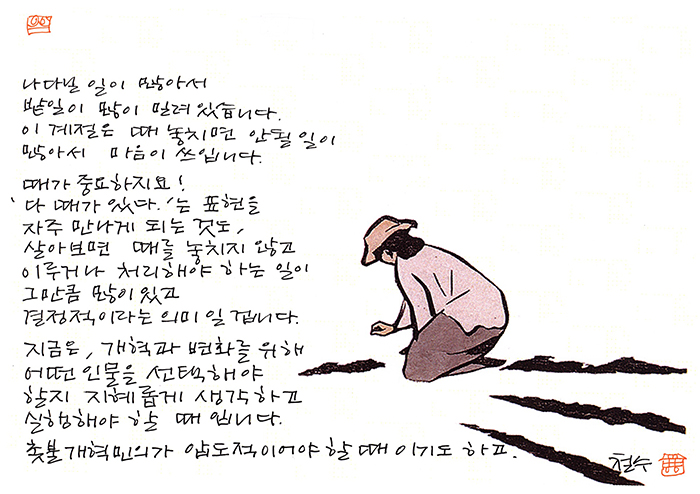 나다닐 일이 많아서
밭일이 많이 밀려 있습니다.
이 계절은 때 놓치면 안될 일이
많아서 마음이 쓰입니다.
때가 중요하지요!
'다 때가 있다.'는 표현을
자주 만나게 되는 것도,
살아보면 때를 놓치지 않고
이루거나 처리해야 하는 일이
그만큼 많이 있고
결정적이라는 의미일 겁니다.
지금은, 개혁과 변화를 위해
어떤 인물을 선택해야
할지 지혜롭게 생각하고
실행해야 할 때 입니다.
촛불개혁민의가 압도적이어야 할 때 이기도 하고.
철수